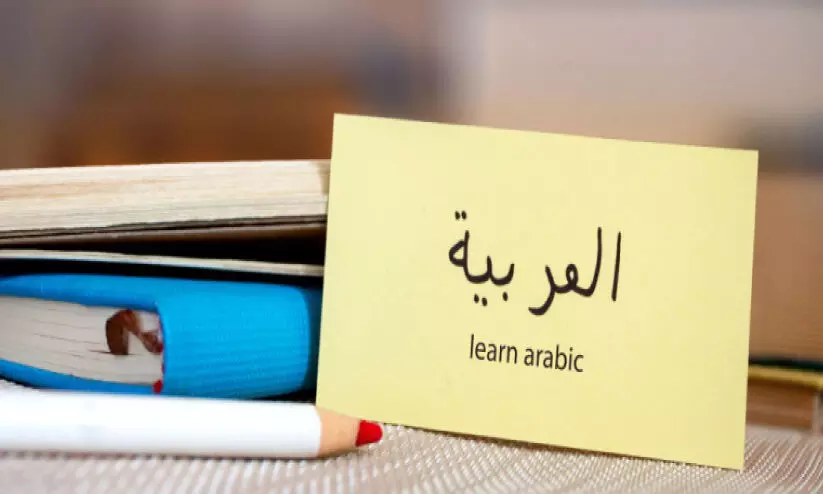 العربية
learn arabic